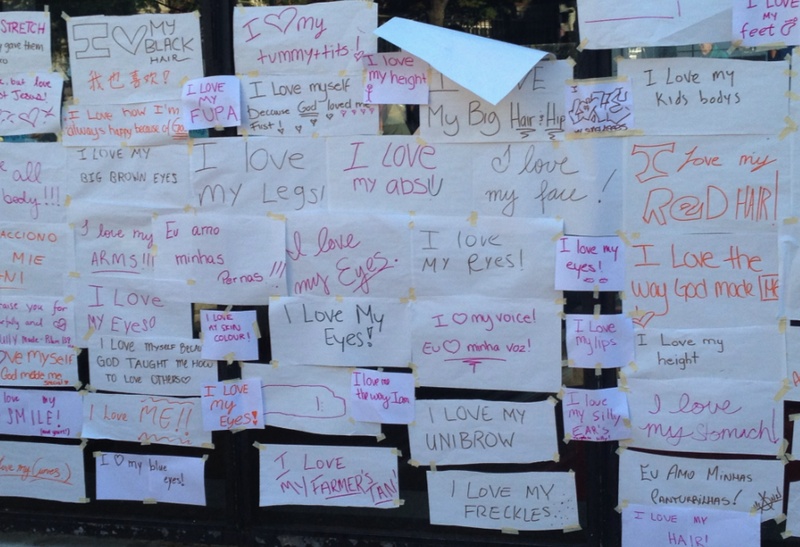 STRETCH
gave them
but love
Jesus!
I ♡ MY
BLACK
HAIR
我也喜欢!
I Love how I'm
always happy because of God
I LOVE
MY
FUPA
I ♡ my
tummy + tits!
I love
my height!
I love myself
Because God loved me
First!
LOVE
My Big Hair & Hip
I LOVE
MY
feet
I Love my
Kids bodys
all
body!!!
I LOVE MY
BIG BROWN EYES
I love
my Legs!
I LOVE
my abs!
I love
my face!
I Love my
RED HAIR!
ACCIONO
MIE
I love my
ARMS!!!
Eu amo
minhas
Pernas!!!
I love
my Eyes.
I love
MY Eyes!
I love my
eyes!
I Love the
way God made ME
praise you for
I LOVE
MY Eyes
I LOVE MYSELF BECAUSE
GOD TAUGHT ME HOW
TO LOVE OTHERS♡
I LOVE
MY SKIN
COLOUR!
I Love My
Eyes!
I ♡ my voice!
Eu ♡ minha voz!
I Love
my lips
I Love my
height
LOVE MYSELF
God made me
love my
SMILE!
I Love ME!!
I LOVE
my
Eyes!
I love me
the way I am
I LOVE MY
UNIBROW
I love
my silly
EARS
I love
my stomach!
love my curves
I ♡ my blue
eyes!
I LOVE
MY FARMER'S TAN!
I LOVE MY
FRECKLES.
EU AMO MINHAS
PANTURRINHAS!
I LOVE MY
HAIR!